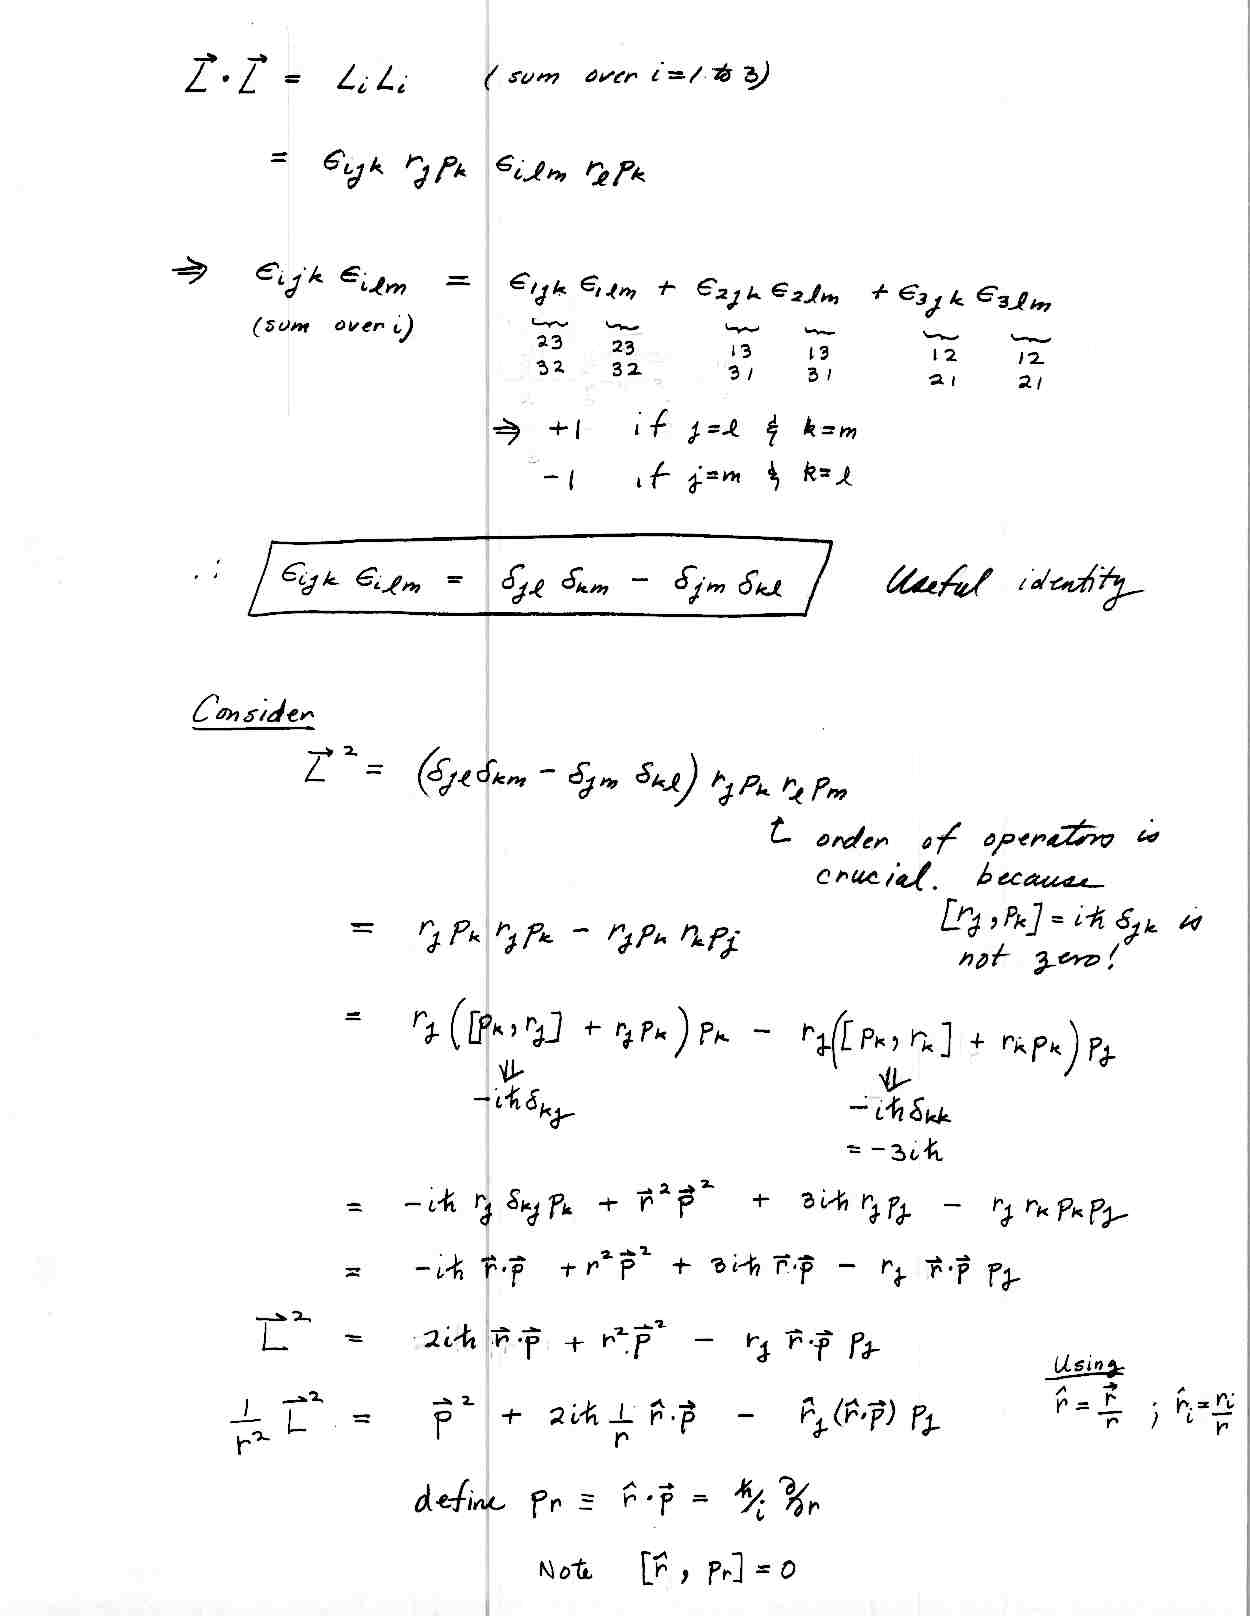 L⃗·L⃗ = LᵢLᵢ (sum over i=1 to 3)
= ϵ_{ijk} r_j p_k ϵ_{ilm} r_l p_k
⇒ ϵ_{ijk} ϵ_{ilm} = ϵ_{1jk} ϵ_{1lm} + ϵ_{2jk} ϵ_{2lm} + ϵ_{3jk} ϵ_{3lm}
(sum over i)
23 23 13 13 12 12
32 32 31 31 21 21
⇒ +1 if j=l & k=m
-1 if j=m & k=l
∴ ϵ_{ijk} ϵ_{ilm} = δ_{jl} δ_{km} - δ_{jm} δ_{kl} Useful identity
Consider
L⃗² = (δ_{jl} δ_{km} - δ_{jm} δ_{kl}) r_j p_k r_l p_m
↑ order of operators is
crucial. because
[r_j, p_k] = iħ δ_{jk} is
not zero!
= r_j p_k r_j p_k - r_j p_k r_k p_j
= r_j ([p_k, r_j] + r_j p_k) p_k - r_j ([p_k, r_k] + r_k p_k) p_j
⇓ ⇓
-iħ δ_{kj} -iħ δ_{kk}
= -3iħ
= -iħ r_j δ_{kj} p_k + r⃗² p⃗² + 3iħ r_j p_j - r_j r_k p_k p_j
= -iħ r⃗·p⃗ + r² p⃗² + 3iħ r⃗·p⃗ - r_j r⃗·p⃗ p_j
L⃗² = 2iħ r⃗·p⃗ + r² p⃗² - r_j r⃗·p⃗ p_j
Using
r̂ = r⃗/r ; r̂_i = r_i/r
1/r² L⃗² = p⃗² + 2iħ 1/r r̂·p⃗ - r̂_j (r̂·p⃗) p_j
define p_r ≡ r̂·p⃗ = ħ/i ∂/∂r
Note [r̂, p_r] = 0